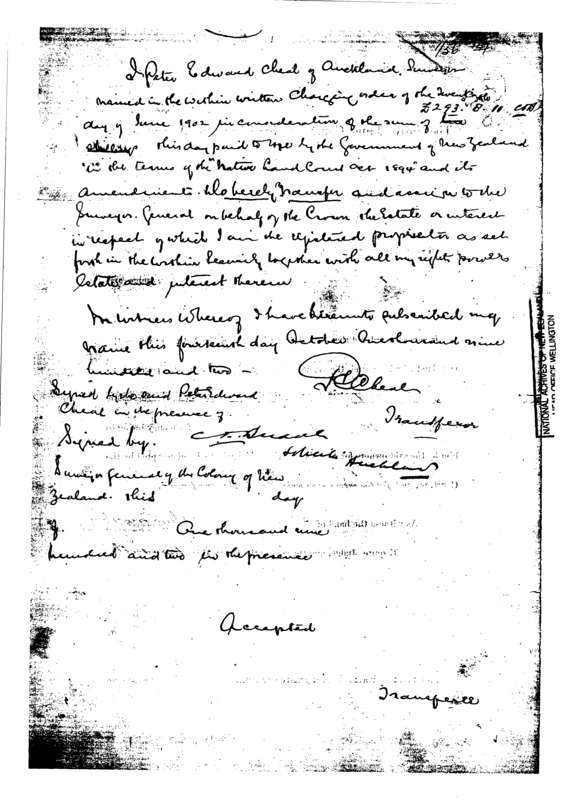 1/56
I Peter Edward Cheal of Auckland, Surveyor
named in the within written Charging order of the Twentieth
£293. 8. 10
day of June 1902 in consideration of the sum of
shillings this day paid to me by the Government of New Zealand
in the terms of the "Native Land Court Act 1894" and its
amendments. Do hereby Transfer and assign to the
Surveyor. General on behalf of the Crown the Estate or interest
in respect of which I am the registered proprietor as set
forth in the within Security together with all my rights powers
Estate and interest therein
In witness whereof I have hereunto subscribed my
name this fourteenth day October One thousand nine
hundred and two –
Signed by the said Peter Edward
Cheal in the presence of.
P E Cheal
Transferor
Signed by.
Solicitor Auckland
Surveyor General of the Colony of New
Zealand. this day
of. One thousand nine
hundred and two in the presence
Accepted
Transferee
NATIONAL ARCHIVES OF NEW ZEALAND
HEAD OFFICE WELLINGTON